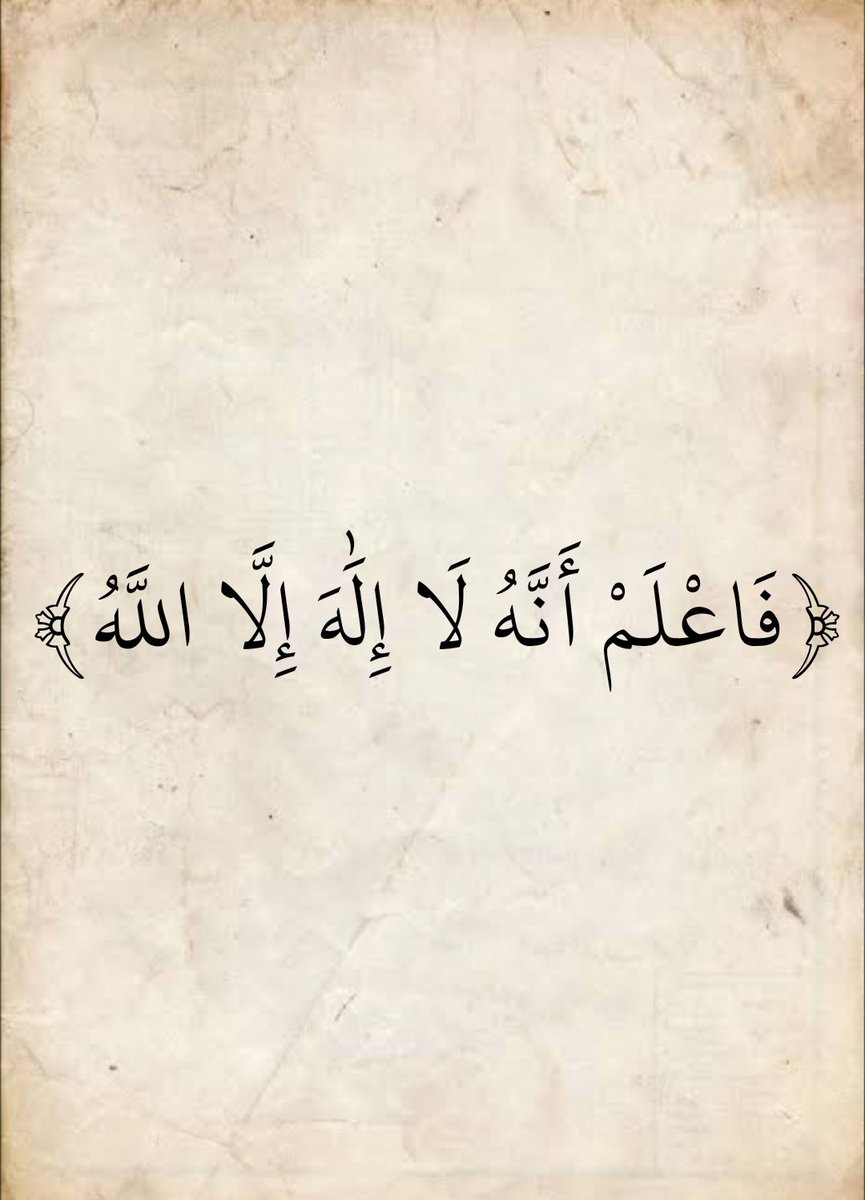 ﴿فَاعْلَمْ أَنَّهُ لَا إِلَٰهَ إِلَّا اللَّهُ﴾